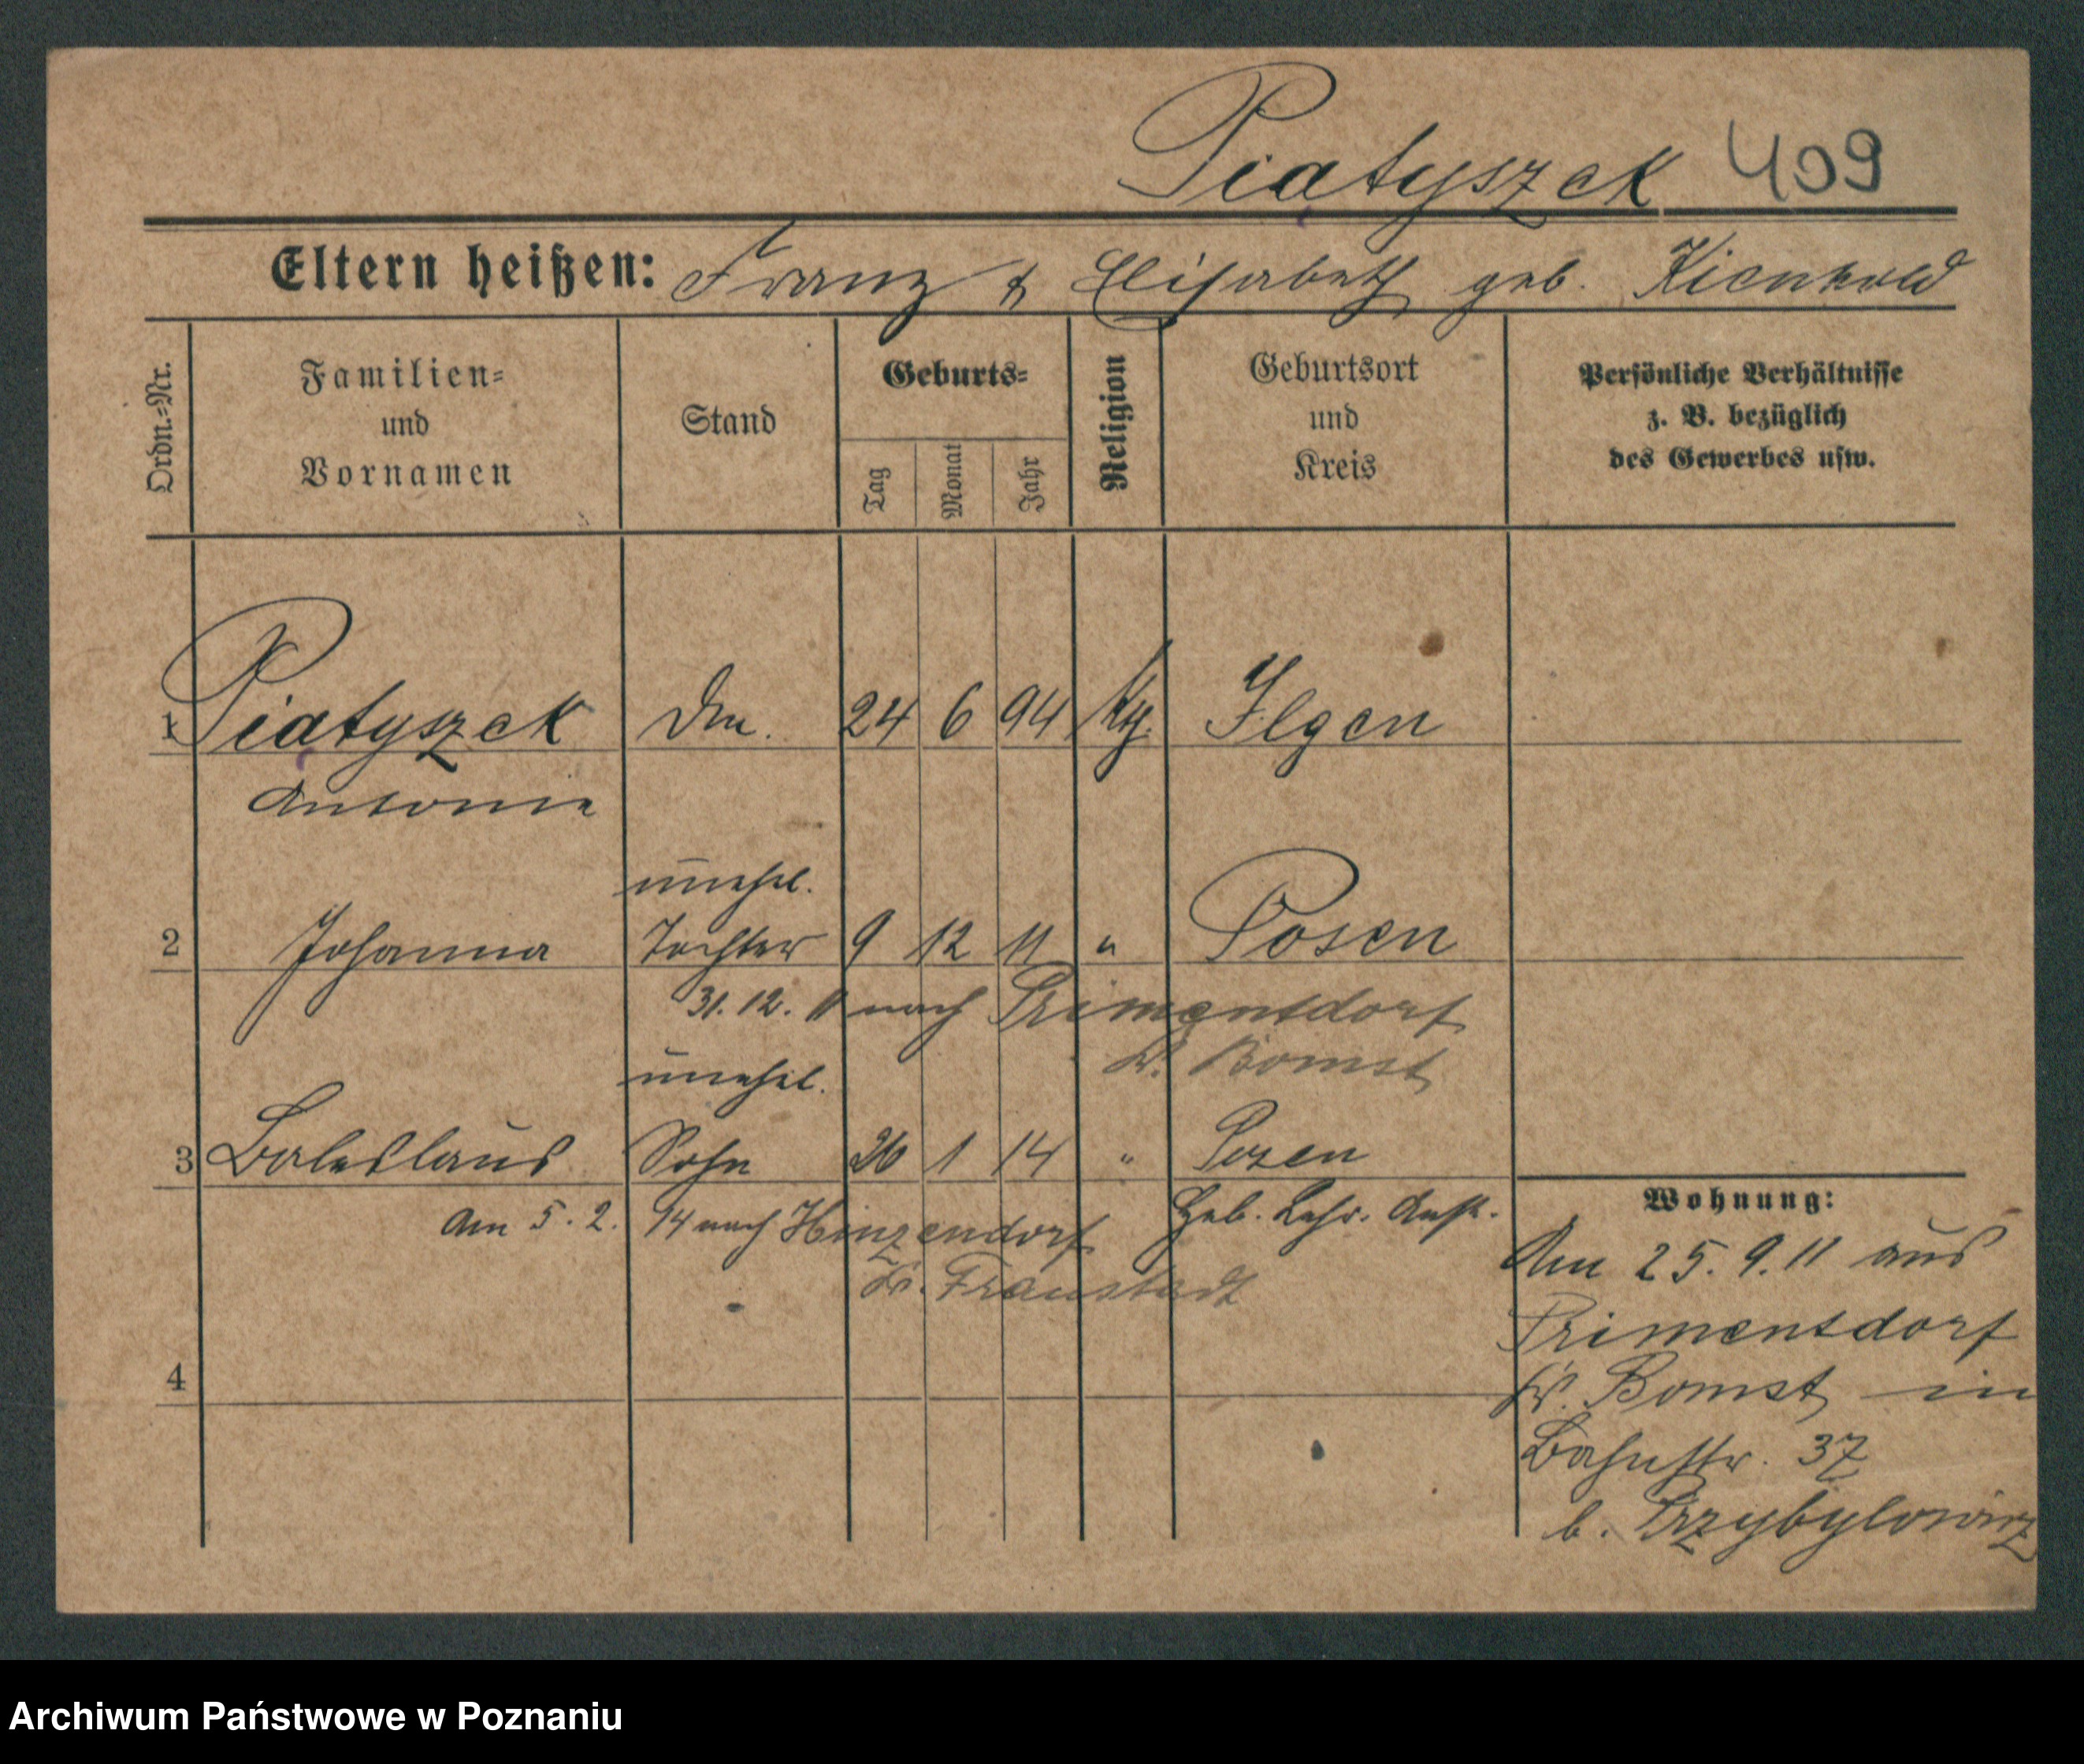 Piatyszek 409
Eltern heißen: Franz & Elisabeth geb. Kienhold
Ordn.-Nr.
Familien-
und
Vornamen
Stand
Geburts-
Tag
Monat
Jahr
Religion
Geburtsort
und
Kreis
Persönliche Verhältnisse
z. B. bezüglich
des Gewerbes usw.
1 Piatyszek 24 6 94 Ilgen
Antonie
unehel.
2 Johanna Tochter 9 12 11 " Posen
31. 12. 11 nach Primentdorf
Kr. Bomst
unehel.
3 Boleslaus Sohn 26 1 14 " Posen
Am 5. 2. 14 nach Hinzendorf Heb. Lehr. Anst.
Kr. Fraustadt
4
Wohnung:
Am 25. 9. 11 aus
Primentdorf
Kr. Bomst in
Bahnstr. 37
b. Przybylowicz
Archiwum Państwowe w Poznaniu